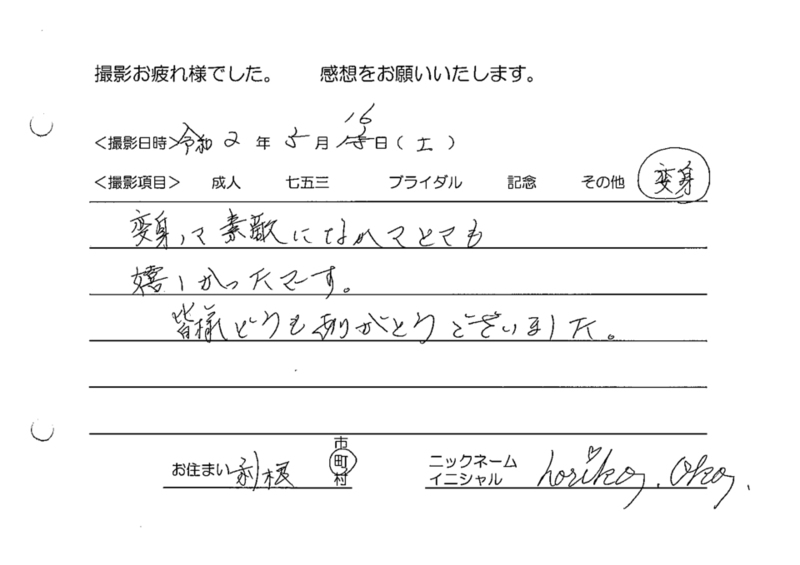 撮影お疲れ様でした。 感想をお願いいたします。
<撮影日時>令和2年5月16日(土)
<撮影項目> 成人 七五三 ブライダル 記念 その他 変身
変身して素敵になれてとても
嬉しかったでーす。
皆様どうもありがとうございました。
お住まい 利根 市町村
ニックネーム イニシャル horiko